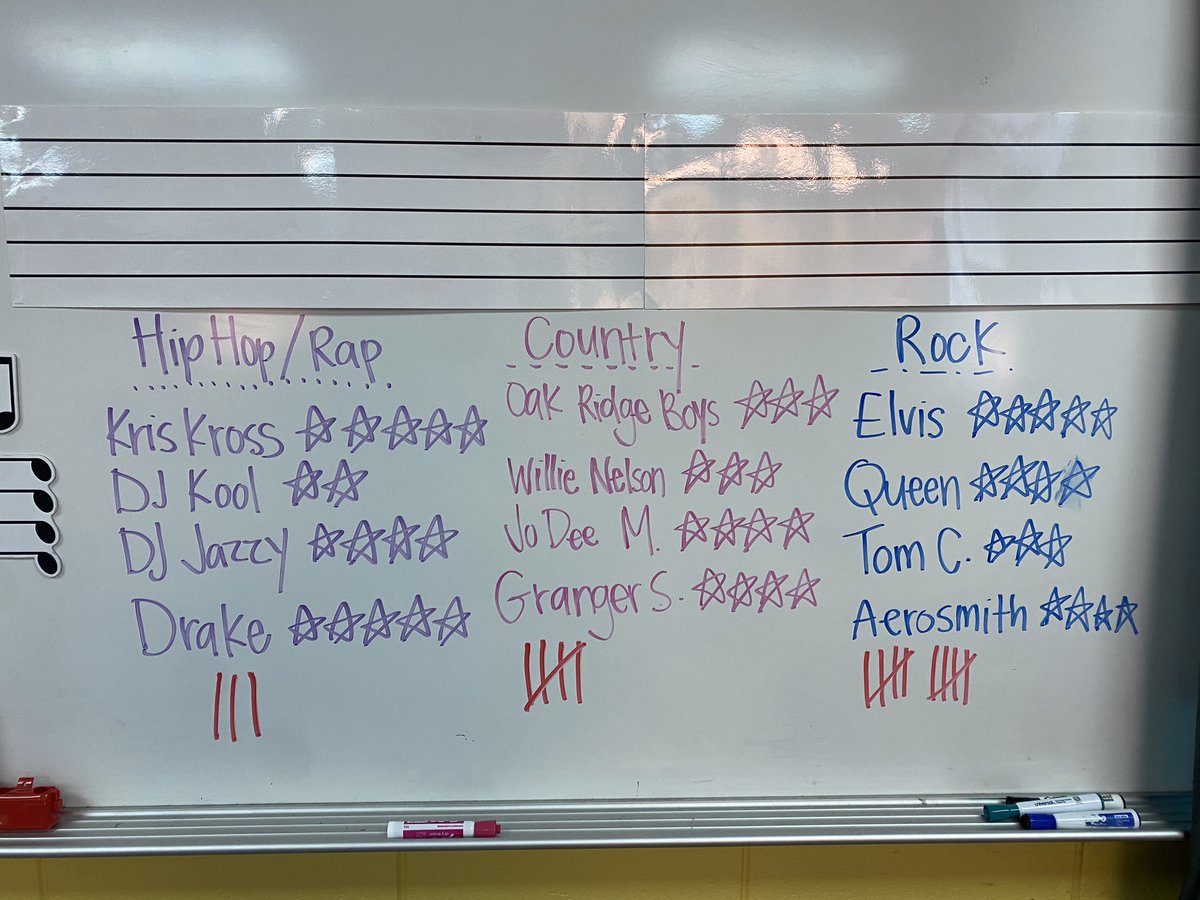 Hip Hop/Rap
Kris Kross ☆☆☆☆☆
DJ Kool ☆☆
DJ Jazzy ☆☆☆☆
Drake ☆☆☆☆☆
Country
Oak Ridge Boys ☆☆☆
Willie Nelson ☆☆☆
Jo Dee M. ☆☆☆☆
Granger S. ☆☆☆☆
Rock
Elvis ☆☆☆☆☆
Queen ☆☆☆☆
Tom C. ☆☆☆
Aerosmith ☆☆☆☆